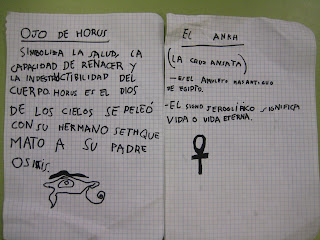 OJO DE HORUS
SIMBOLIZA LA SALUD, LA
CAPACIDAD DE RENACER Y
LA INDESTRUCTIBILIDAD DEL
CUERPO. HORUS ES EL DIOS
DE LOS CIELOS SE PELEÓ
CON SU HERMANO SETH QUE
MATO A SU PADRE
OSIRIS.
EL ANKH
(LA CRUZ ANSATA)
- ES EL AMULETO MAS ANTIGUO
DE EGIPTO.
- EL SIGNO JEROGLIFICO SIGNIFICA
VIDA O VIDA ETERNA.